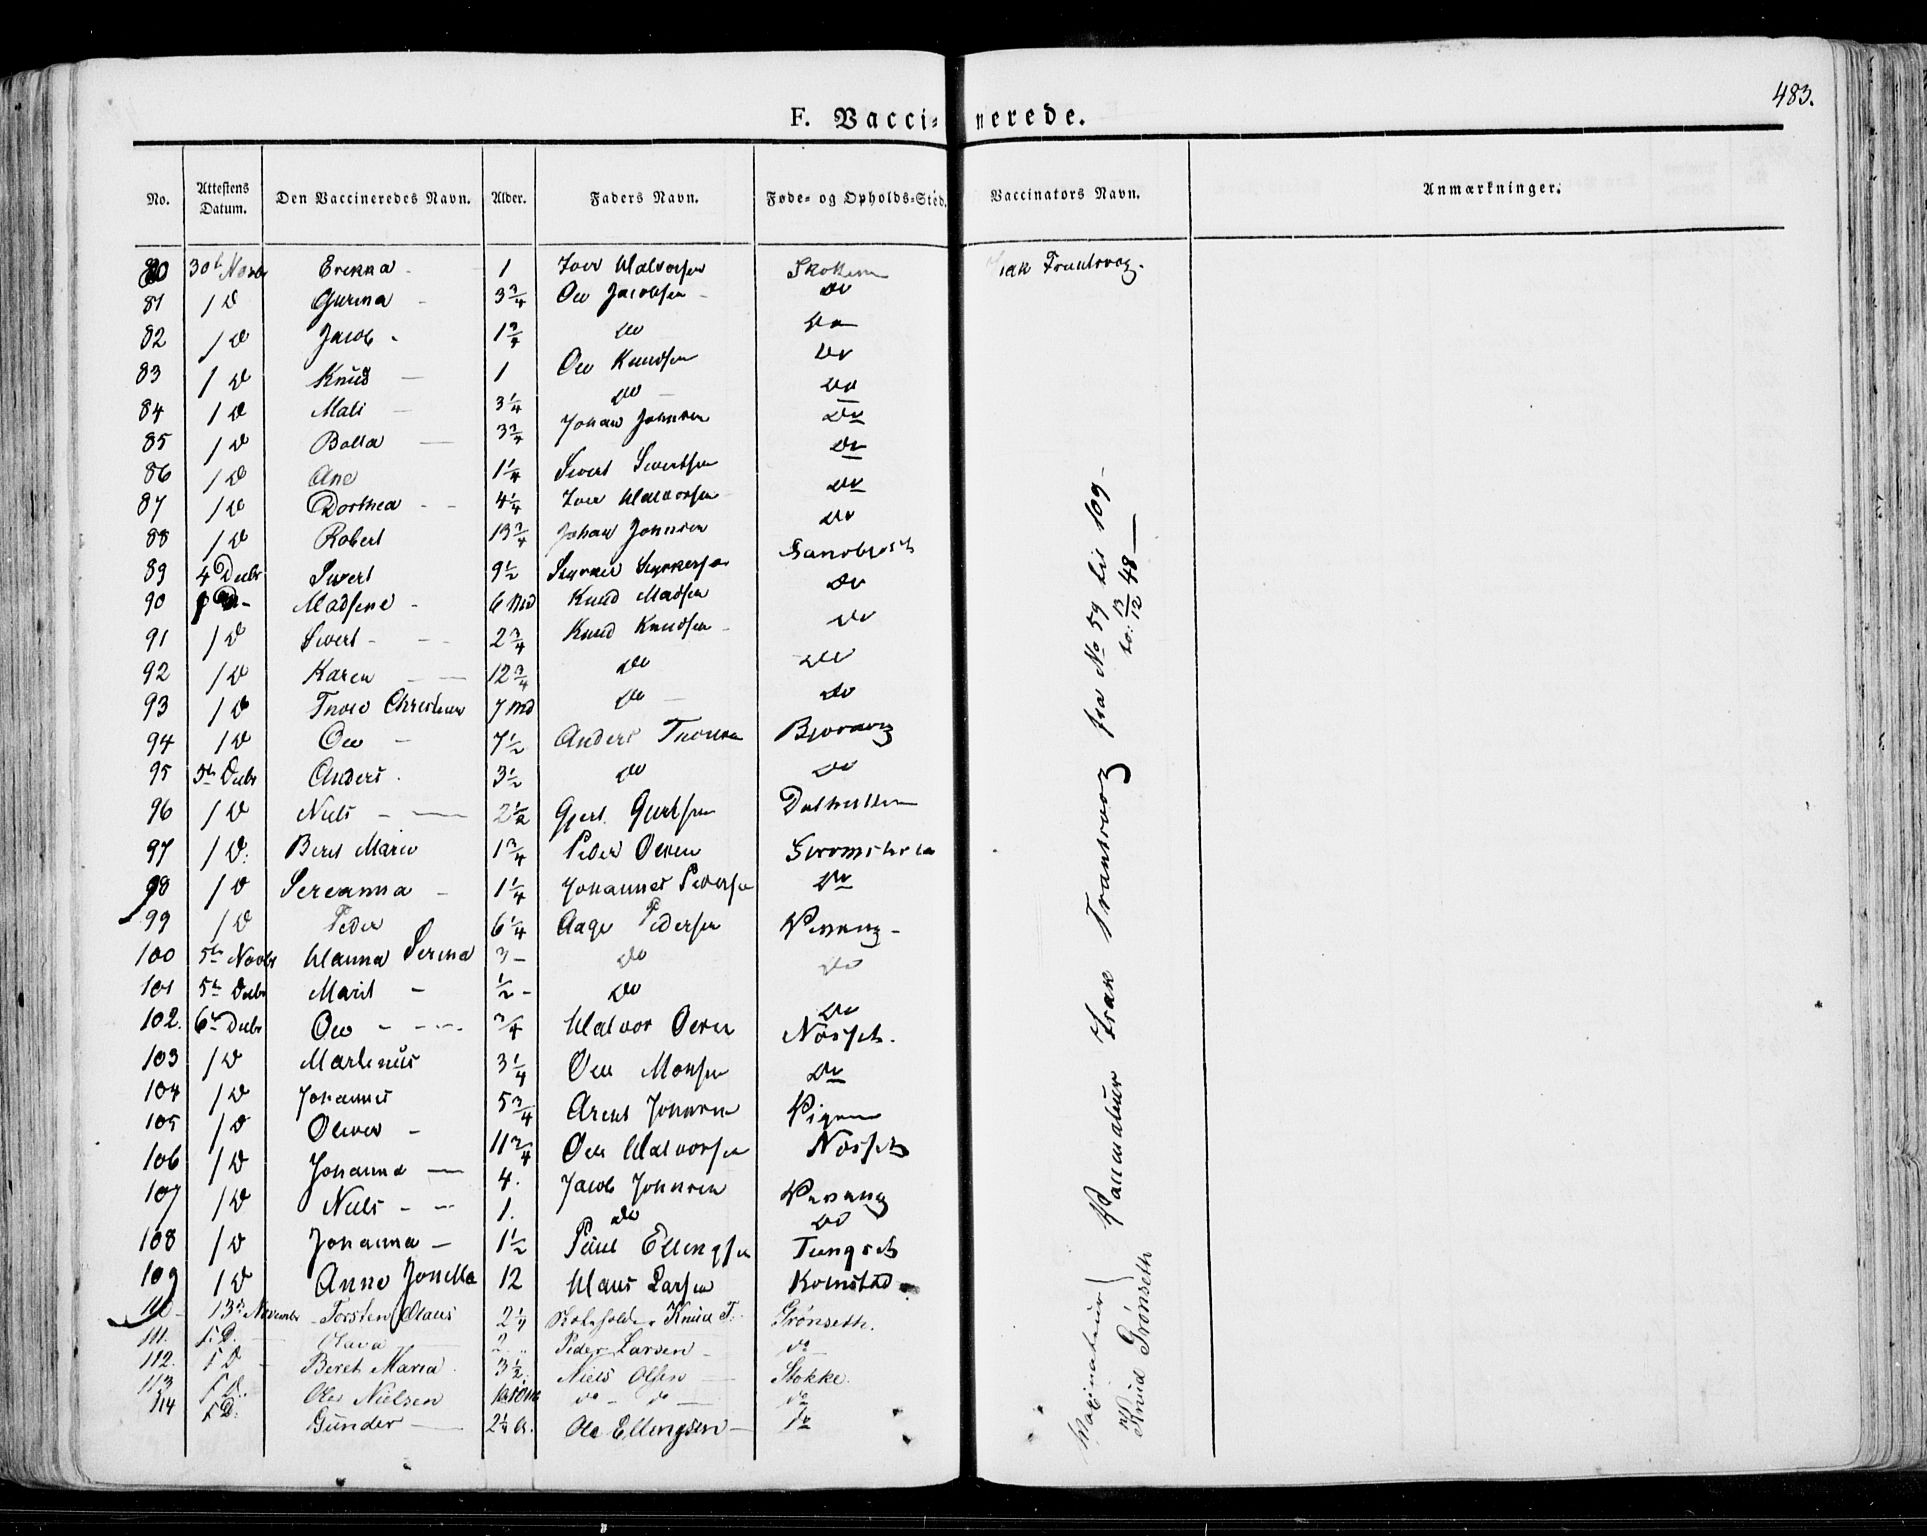 483.
F. Vaccinerede.
No. Attestens Datum. Den Vaccineredes Navn. Alder. Faders Navn. Føde- og Opholds-Sted. Vaccinators Navn. Anmærkninger.
80 30t Novbr Erikka 1 Iver Halvorsen
81 1 D Gurina - 3 3/4 Ole Jacobsen - Do
82 1 D Jacob - 1 3/4 Do Do
83 1 D Knud - 1 Ole Knudsen Do
84 1 D Mali - 3 1/4 Do - Do
85 1 D 3 3/4 Johan Johnsen Do
86 1 D Ane 1 1/4 Sivert Sivertsen Do
87 1 D Dorthea - - 4 1/4 Iver Halvorsen Do
88 1 D Robert 13 3/4 Johan Johnsen Do
89 4 Decbr Sivert 9 1/2
90 Madsine - 6 Md Knud Madsen Do
91 1 D Sivert - - - 2 3/4 Knud Knudsen - Do
92 1 D Karen - - 12 3/4 Do Do
93 1 D 7 Md Do - Do
94 1 D Ole - 7 1/2 Anders
95 5te Decbr Anders. 3 1/2 Do Do
96 1 D Niels - - 2 1/2 Gjert Gjertsen
97 1 D. Berit Marie 1 3/4 Peder Olsen
98 1 D Sereanna - 1 1/4 Johannes Pedersen Do
99 1 D Peder 6 1/4 Aage Pedersen Vevang -
100 5te Novbr Hanna Serina 3 - Do Do
101 5te Decbr Marit - 1/2 - Do Do
102. 6te Decbr Ole - - - - 3/4 Halvor Olsen
103 1 D Martinus 3 1/4 Ole Monsen Do
104 1 D Johannes 5 3/4 Arent Johnsen
105 1 D - 11 3/4 Ole Halvorsen
106 1 D Johanna - 4. Jacob Johnsen Vevang
107 1 D Niels - - 1. Do Do
108 1 D Johanna - 1 1/2 Paul Ellingsen
109 1 D Anne Jonetta 12 Hans Larsen Kolmstad
110 - 13de November - Torsten Olaus 2 1/4 Knud T. Grönseth.
111. 1 D. - Olava - 2 " Peder Larsen - do
112. 1 D - Beret Maria. 3 1/2. Niels Olsen - Stokke.
113 1 D. Ole Nielsen do - do - do
114 1 D. Gunder - 2 1/4 A. Ole Ellengsen - do
Vaccinateur Isak Transvog fra No 59 til 109 -
13/12 48 -
Vaxinateur
Knud Grönseth